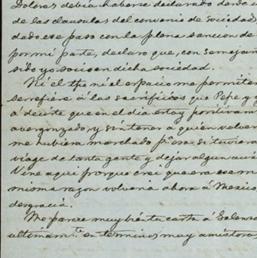 Dolores debia haberse declarado desde
de las clausulas del convenio de sociedad
dado ese paso con la plena sancion de
por mi parte, declaro que, con semejan
sido yo socio en dicha sociedad.
Ni el tpo ni el espacio me permiten
se refiere á los sacrificios que Pepe y
á decirte que en el dia estoy positivam
avergonzado y sin tener á quien volver
me hubiera marchado pr si tuviera
viage de tanta gente y dejar algun
Vine aqui porque crei que era
misma razon volveria ahora á Mexico
desgracia.
Me parece muy bien tu carta á
ultimamte en terminos muy